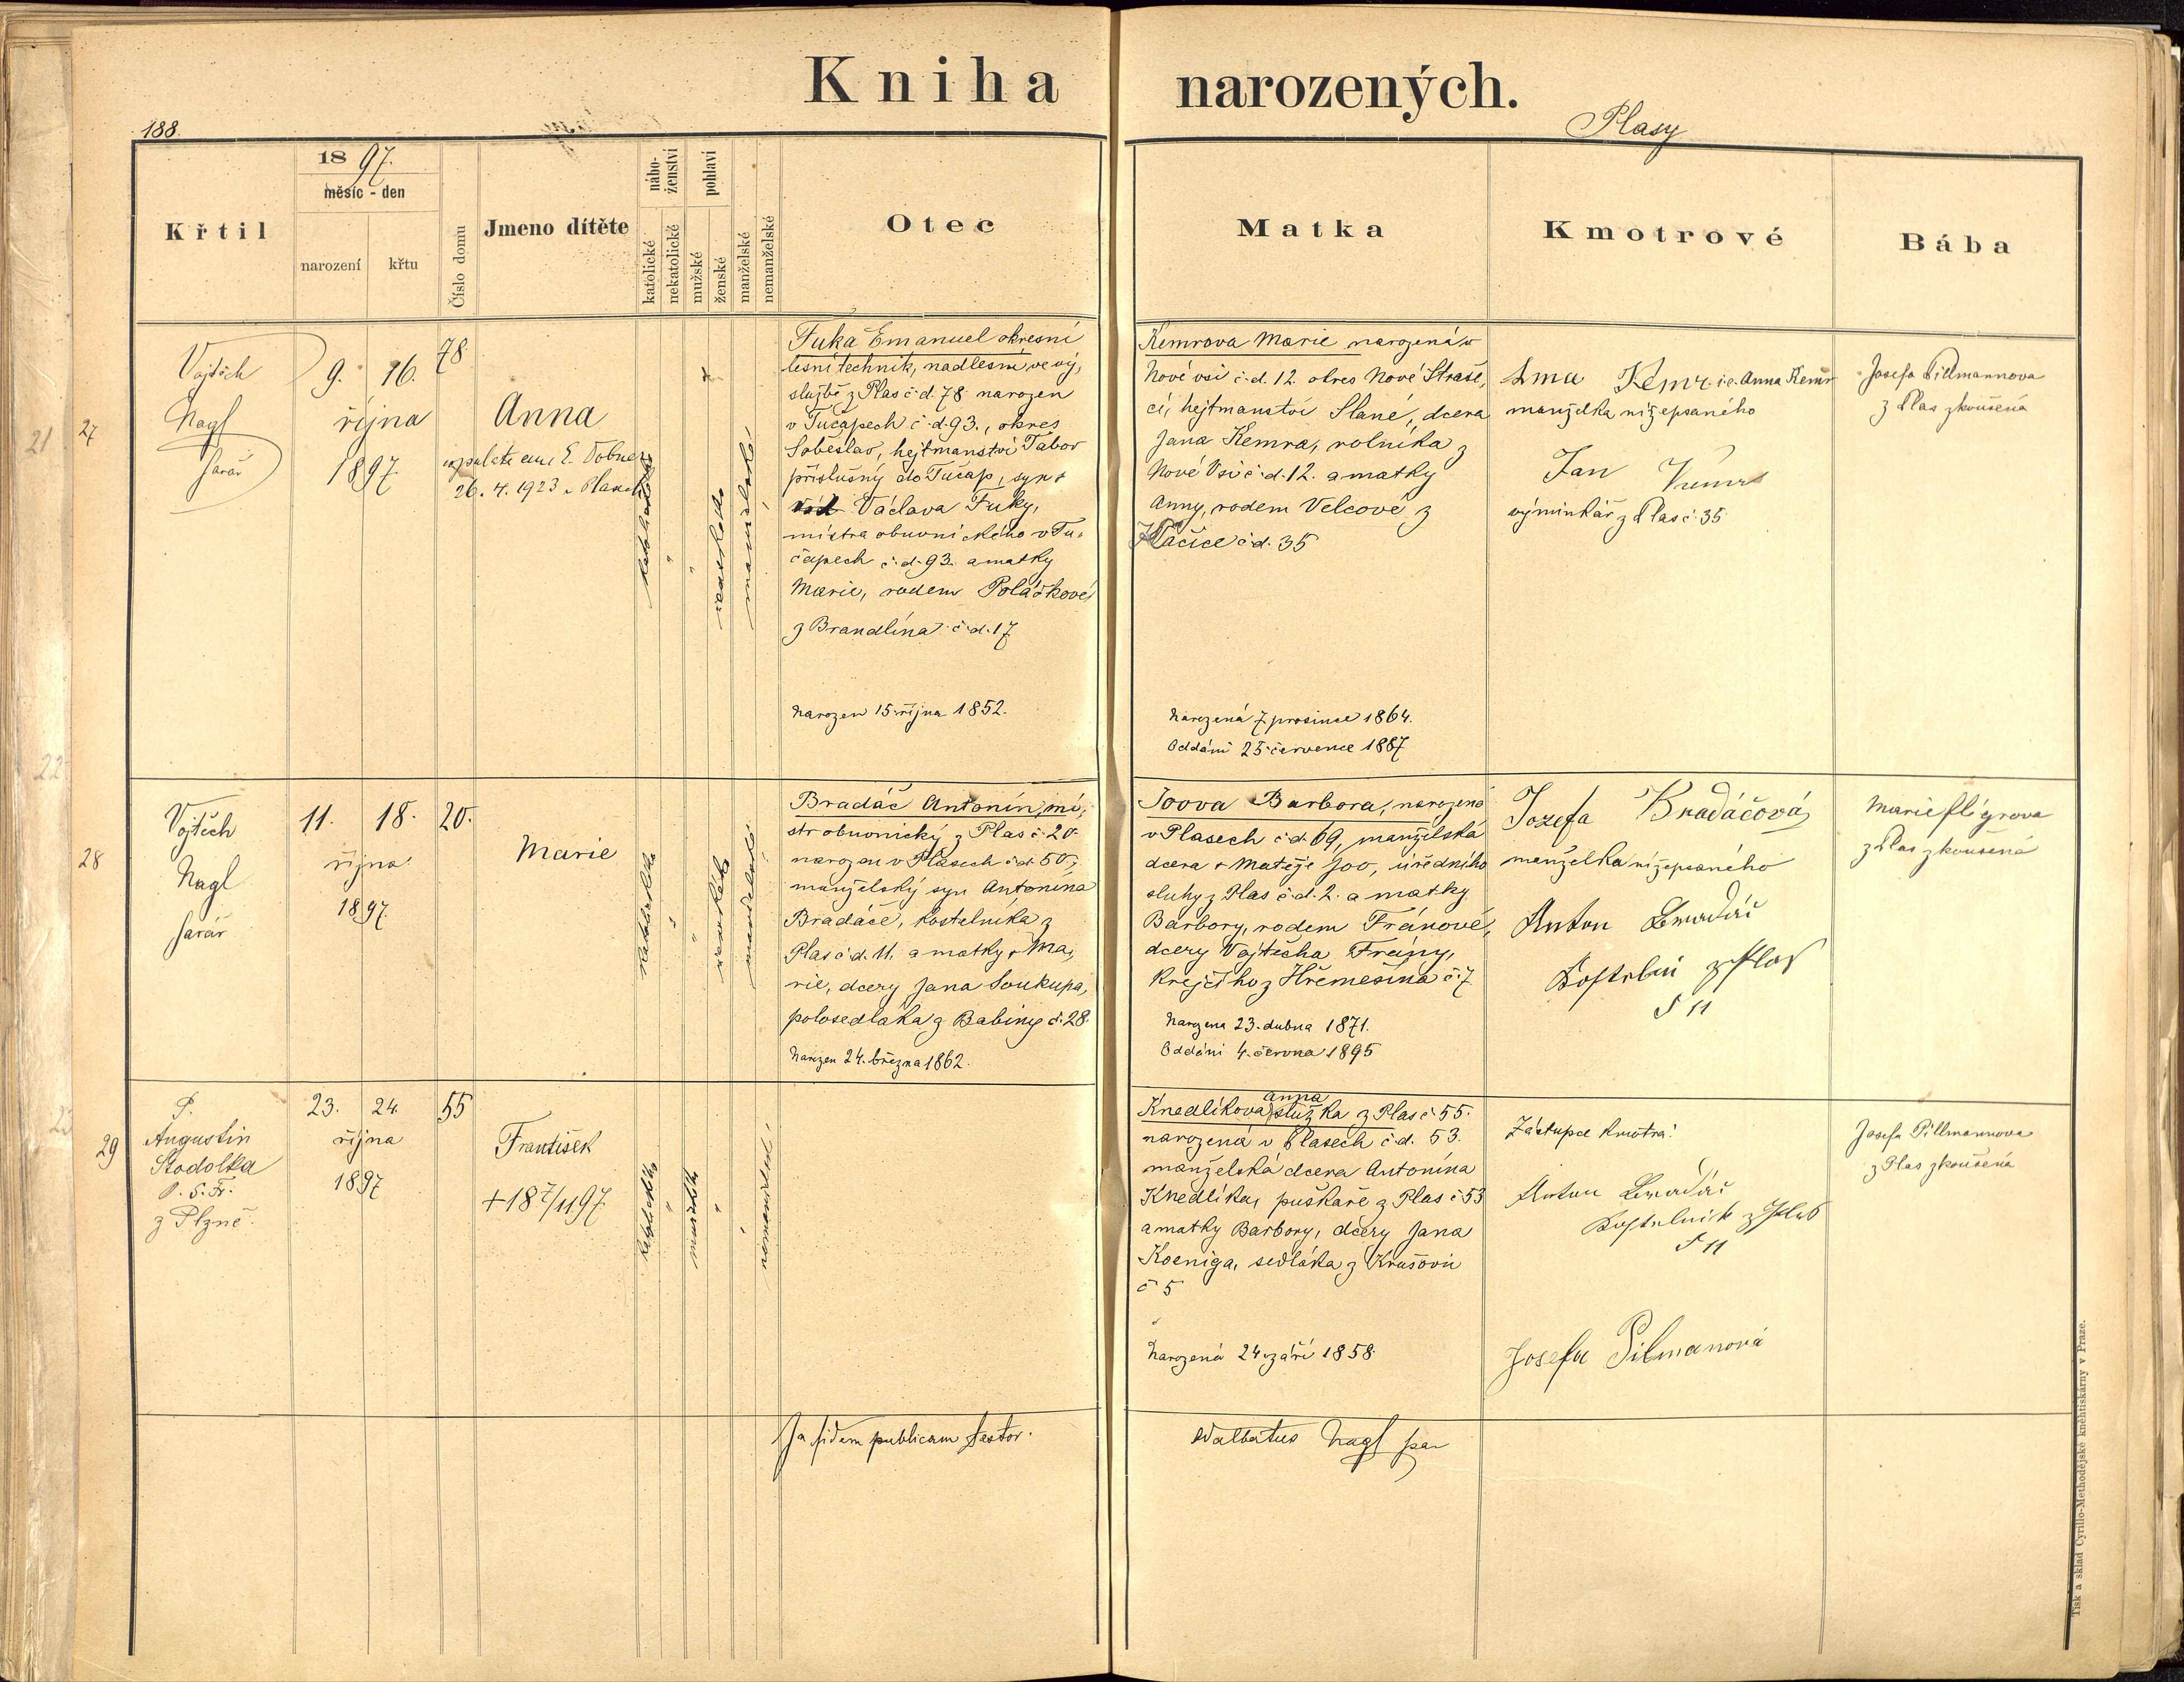 Kniha narozených.
188.
Plasy
Křtil
1897.
měsíc - den
narození
křtu
Číslo domu
Jmeno dítěte
nábo-
ženství
katolické
nekatolické
pohlaví
mužské
ženské
manželské
nemanželské
Otec
Matka
Kmotrové
Bába
21
27
Vojtěch
Nagl
farář
9. 16.
října
1897
78
Anna
26. 4. 1923 v Plasech
katolické
ženské
manželské
Fuka Emanuel okresní
lesní technik, nadlesní ve vý,
službě z Plas č d. 78 narozen
v Tučapech č. d. 93., okres
Soběslav, hejtmanství Tábor
příslušný do Tučap, syn +
Václava Fuky,
mistra obuvnického v Tu,
čapech č. d. 93. a matky
Marie, rodem Poláčkové
z Brandlína č. d. 17
Narozen 15. října 1852.
Kemrova Marie narozená v
Nové vsi č. d. 12. okres Nové Straše,
cí, hejtmanství Slané, dcera
Jana Kemra, rolníka z
Nové Vsi č. d. 12. a matky
Anny, rodem Velcové z
č d. 35
Narozená 7. prosince 1864.
Oddáni 25. července 1887
Anna Kemr i.e. Anna Kemr
manželka nížepsaného
Jan
výminkář z Plas č. 35
Josefa Pillmannova
z Plas zkoušená
22
28
Vojtěch
Nagl
farář
11. 18.
října
1897.
20.
Marie
katolické
ženské
manželské
Bradáč Antonín, mi,
str obuvnický z Plas č. 20
narozen v Plasech č d 50,
manželský syn Antonína
Bradáče, kostelníka z
Plas č d. 11. a matky + Ma,
rie, dcery Jana Soukupa,
polosedláka z Babiny č. 28.
Narozen 24. března 1862.
Joova Barbora, narozená
v Plasech č d. 69, manželská
dcera + Matěje Joo, úředního
sluhy z Plas č. d. 2. a matky
Barbory, rodem Fránové,
dcery Vojtěcha Frány,
krejčího z Hřemešína č. 7
Narozena 23. dubna 1871.
Oddáni 4. června 1895
Jozefa Bradáčová
manželka nížepsaného
Anton Bradáč
Kostelní z Plas
č 11
Marie Flégrova
z Plas zkoušená
23
29
P.
Augustin
Stodolka
O. S. Fr.
z Plzně.
23. 24.
října
1897
55
František
+ 18 7/11 97.
katolické
mužské
nemanželské
Anna
Knedlíkova služka z Plas č 55.
narozená v Plasech č d. 53.
manželská dcera Antonína
Knedlíka, puškaře z Plas č 53
a matky Barbory, dcery Jana
Koeniga, sedláka z Krašovic
č 5
Narozená 24. září 1858.
Zástupce kmotra:
Anton Bradáč
Kostelník z Plas
č 11
Josefa Pilmanová
Josefa Pillmannova
z Plas zkoušená
In fidem publicam testor.
Adalbertus Nagl par
Tisk a sklad Cyrillo-Methodějské knihtiskárny v Praze.